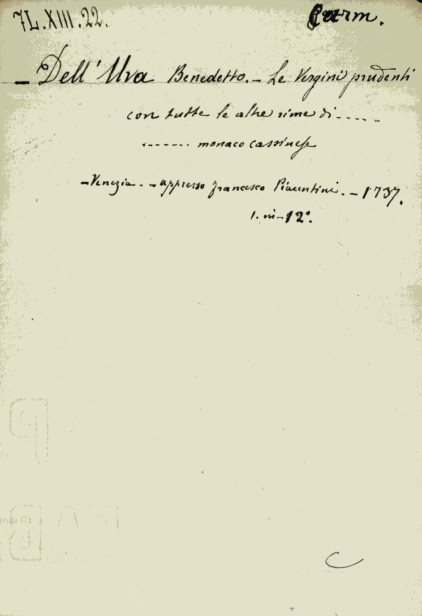 7L.XIII.22.
Carm.
- Dell'Uva Benedetto. - Le Vergini prudenti
con tutte le altre rime di .....
....... monaco cassinese
- Venezia. - appresso Francesco Piacentini. - 1737.
1. in - 12°.
C